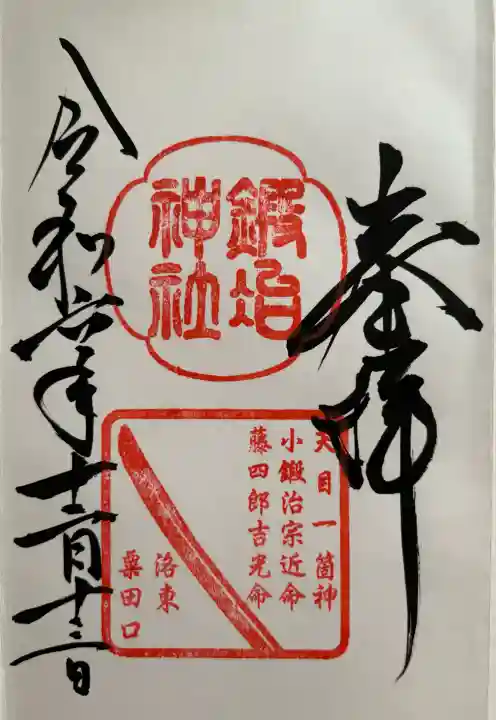 奉拝
鍛冶
神社
天目一箇神
小鍛冶宗近命
藤四郎吉光命
洛東
粟田口
令和六年十二月十三日